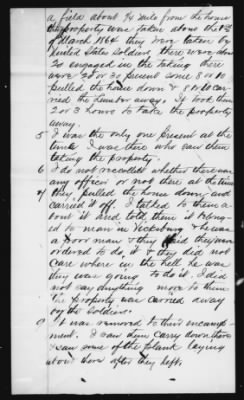 a field about ¼ mile from the house
the property was taken about the
of March 1864 they were taken by
United States Soldiers there were about
20 engaged in the taking there
were 20 or 30 present some 8 or 10
pulled the house down & 8 or 10 car
ried the Lumber away. It took them
2 or 3 hours to take the property
away.
5 I was the only one present at the
time I was there who saw them
taking the property.
6 I do not recollect whether there was
any officer or not there at the time
they pulled the house down, and
carried it off. I talked to them a
bout it and told them it belong
ed to man in Vicksburg & he was
a poor man & they said they were
ordered to do it & they did not
care where in the hell he was
they was going to do it. I did
not say anything more to them
The property was carried away
by the Soldiers.
9 It was removed to their encamp
ment. I saw them carry down there
& saw some of the plank laying
about there after they left.